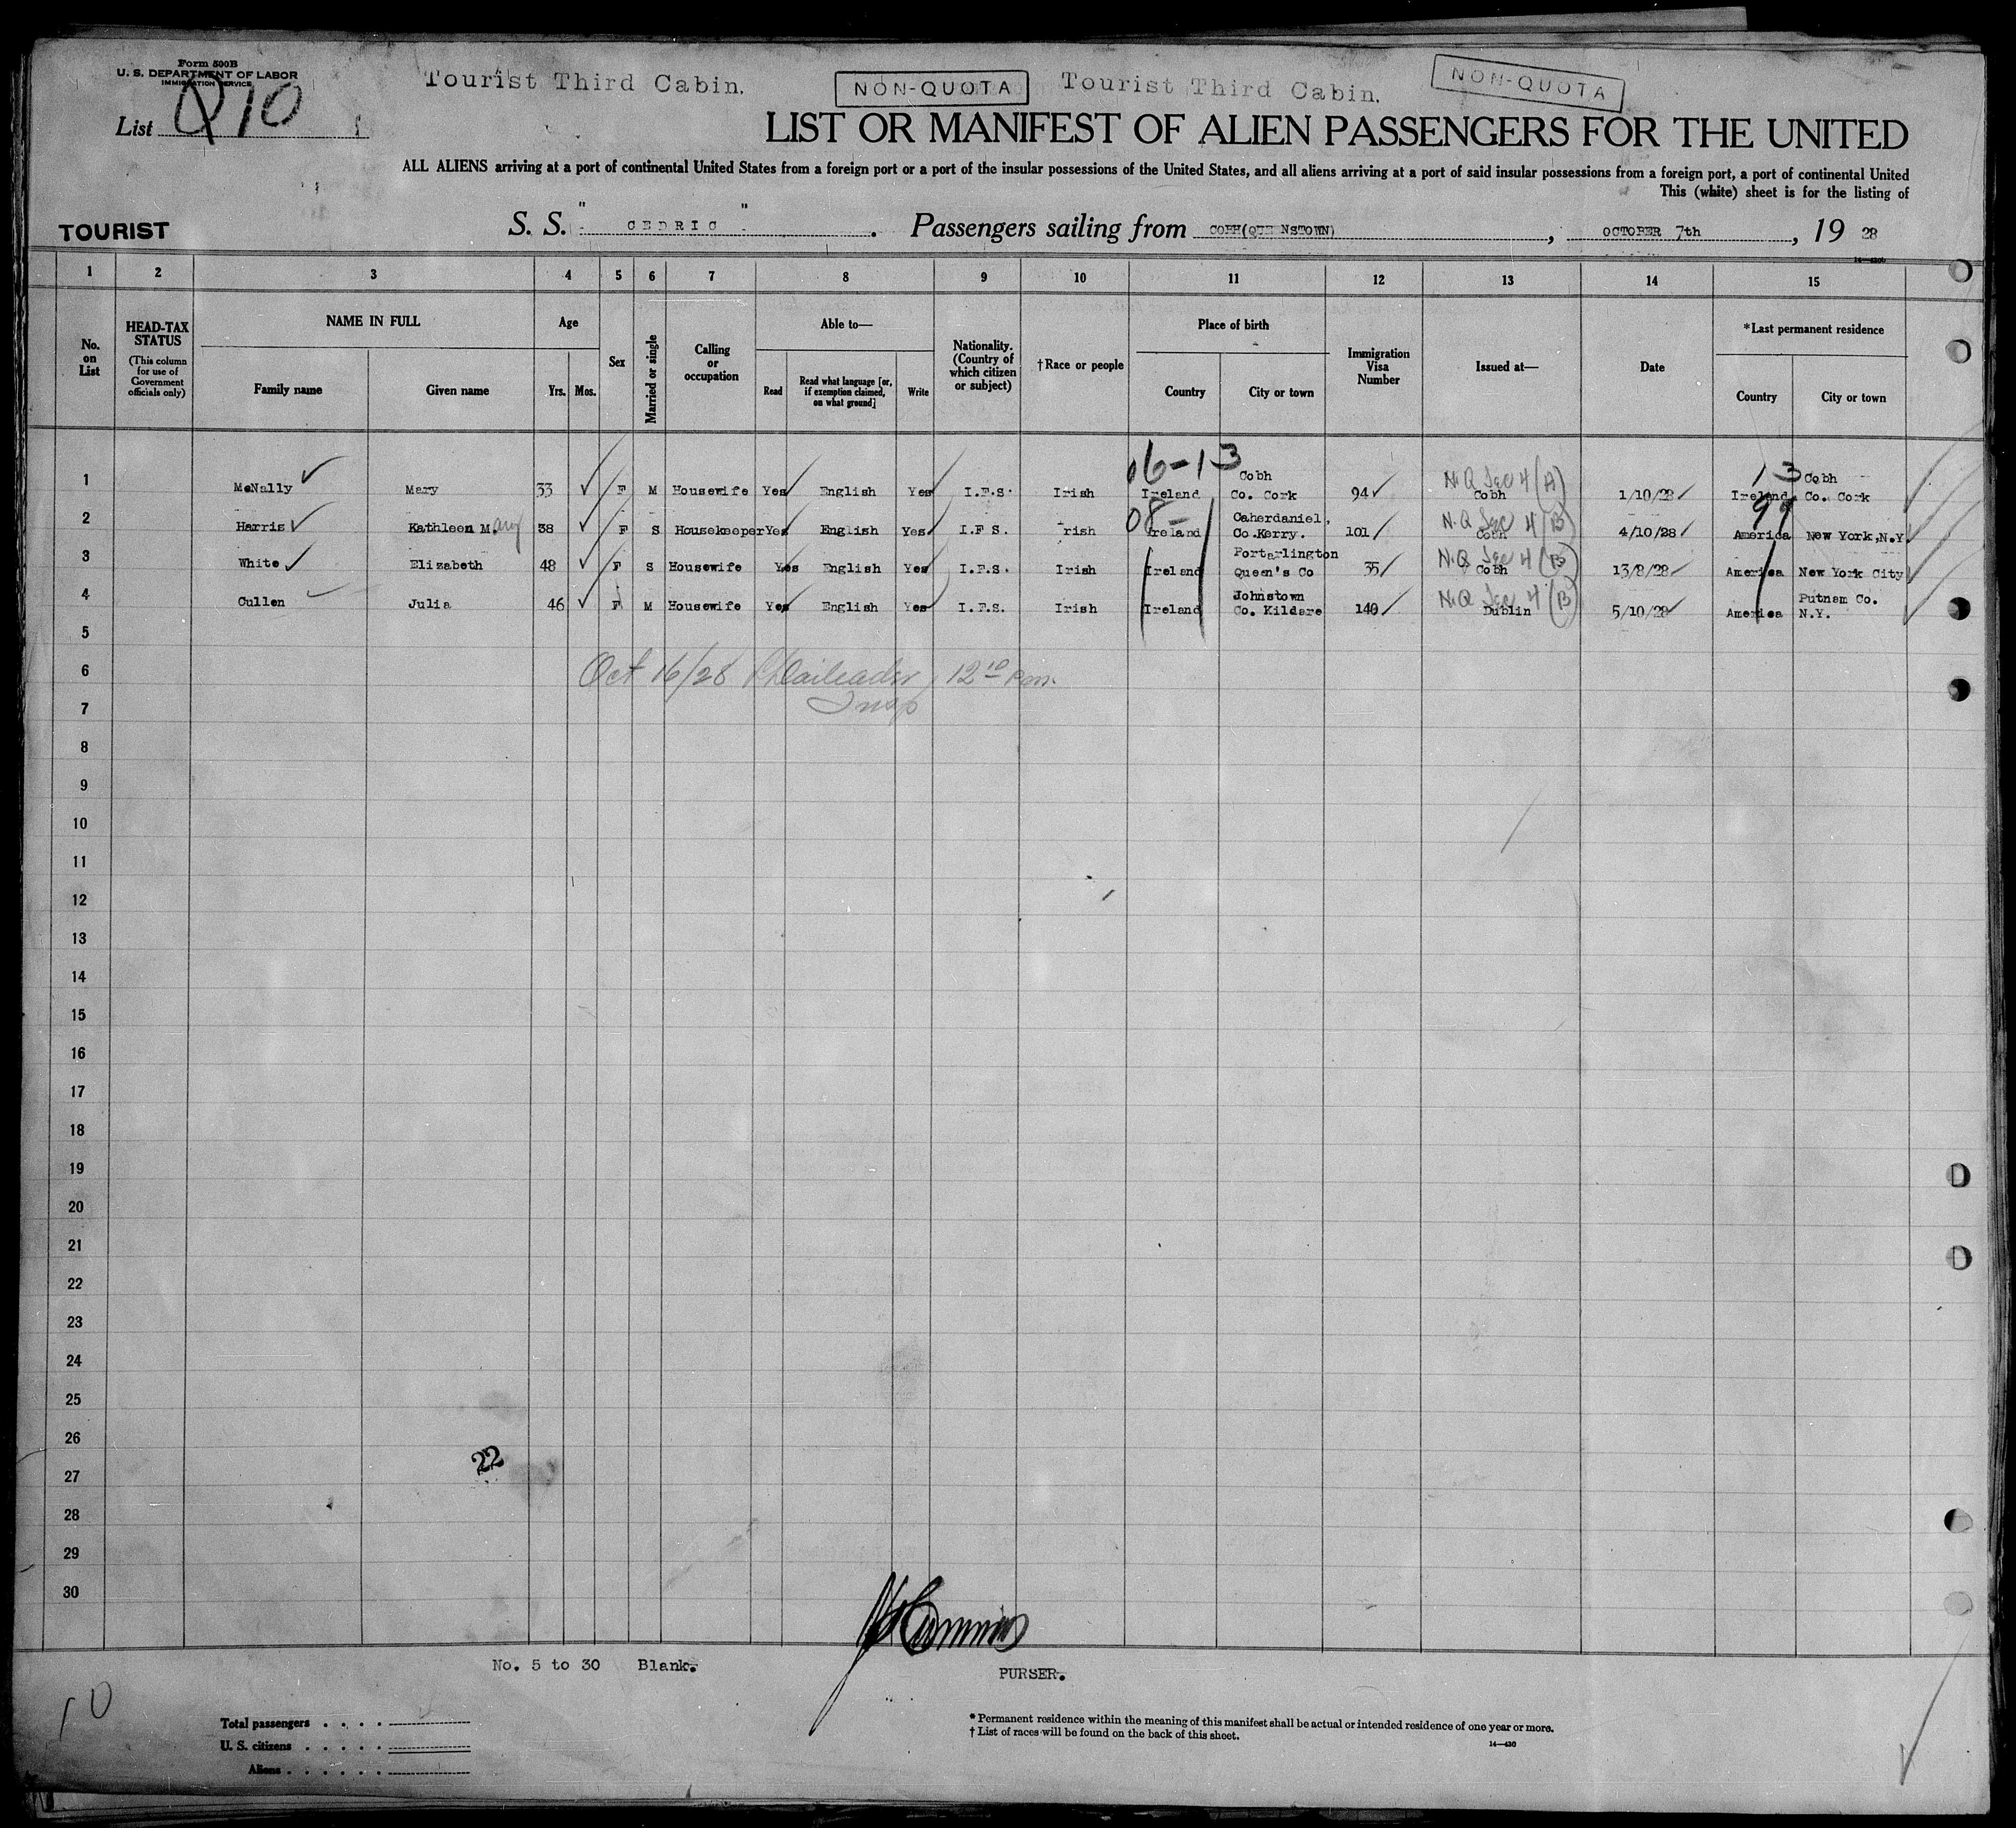 Form 500B
U. S. DEPARTMENT OF LABOR
IMMIGRATION SERVICE
List Q 10
Tourist Third Cabin. NON-QUOTA Tourist Third Cabin. NON-QUOTA
LIST OR MANIFEST OF ALIEN PASSENGERS FOR THE UNITED
ALL ALIENS arriving at a port of continental United States from a foreign port or a port of the insular possessions of the United States, and all aliens arriving at a port of said insular possessions from a foreign port, a port of continental United
This (white) sheet is for the listing of
TOURIST S. S. " CEDRIC " . Passengers sailing from COBH(QUEENSTOWN) , OCTOBER 7th , 19 28
1 2 3 4 5 6 7 8 9 10 11 12 13 14 15
No. on List
HEAD-TAX STATUS
(This column for use of Government officials only)
NAME IN FULL
Family name Given name
Age
Yrs. Mos.
Sex
Married or single
Calling or occupation
Able to—
Read Read what language [or, if exemption claimed, on what ground] Write
Nationality. (Country of which citizen or subject)
†Race or people
Place of birth
Country City or town
Immigration Visa Number
Issued at—
Date
*Last permanent residence
Country City or town
16-13 13
1 McNally Mary 33 F M Housewife Yes English Yes I.F.S. Irish Ireland Cobh Co. Cork 94 N.Q Sec 4 (A) Cobh 1/10/28 Ireland Cobh Co. Cork
08- 99
2 Harris Kathleen M.ary 38 F S Housekeeper Yes English Yes I.F S. rish Ireland Caherdaniel, Co.Kerry. 101 N.Q Sec 4 (B) Cobh 4/10/28 America New York,N.Y.
3 White Elizabeth 48 F S Housewife Yes English Yes I.F.S. Irish Ireland Portarlington Queen's Co 35 N.Q Sec 4 (B) Cobh 13/8/28 America New York City
4 Cullen Julia 46 F M Housewife Yes English Yes I.F.S. Irish Ireland Johnstown Co. Kildare 140 N.Q Sec 4 (B) Dublin 5/10/28 America Putnam Co. N.Y.
5
6 Oct 16/28 12 10 Pm.
7 Insp
8
9
10
11
12
13
14
15
16
17
18
19
20
21
22
23
24
25
26
22
27
28
29
30
No. 5 to 30 Blank.
PURSER.
10
Total passengers . . . .
U. S. citizens . . . . .
Aliens . . . . . .
* Permanent residence within the meaning of this manifest shall be actual or intended residence of one year or more.
† List of races will be found on the back of this sheet.
14—430